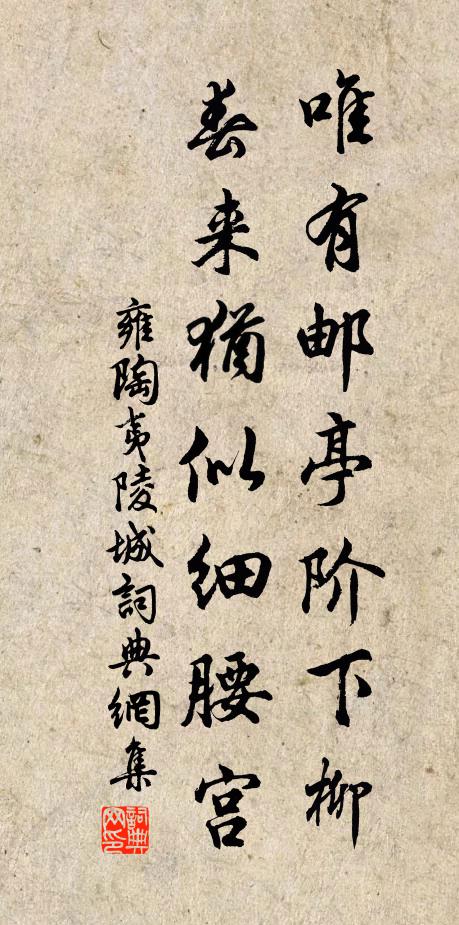 唯有邮亭阶下柳
春来犹似细腰宫
雍陶夷陵城詞典網集
詞典网印